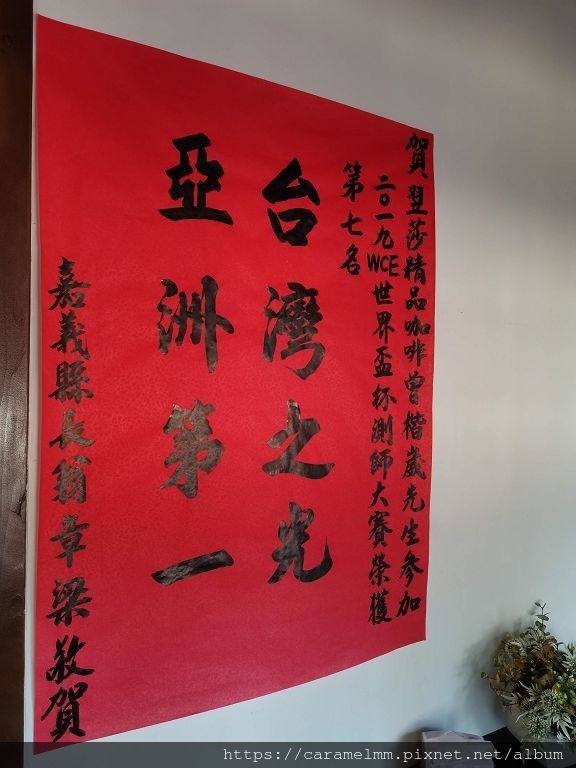 賀翌莎精品咖啡曾楷崴先生參加
二〇一九WCE世界盃杯測師大賽榮獲
第七名
台灣之光
亞洲第一
嘉義縣長翁章梁敬賀
https://caramelmm.pixnet.net/album